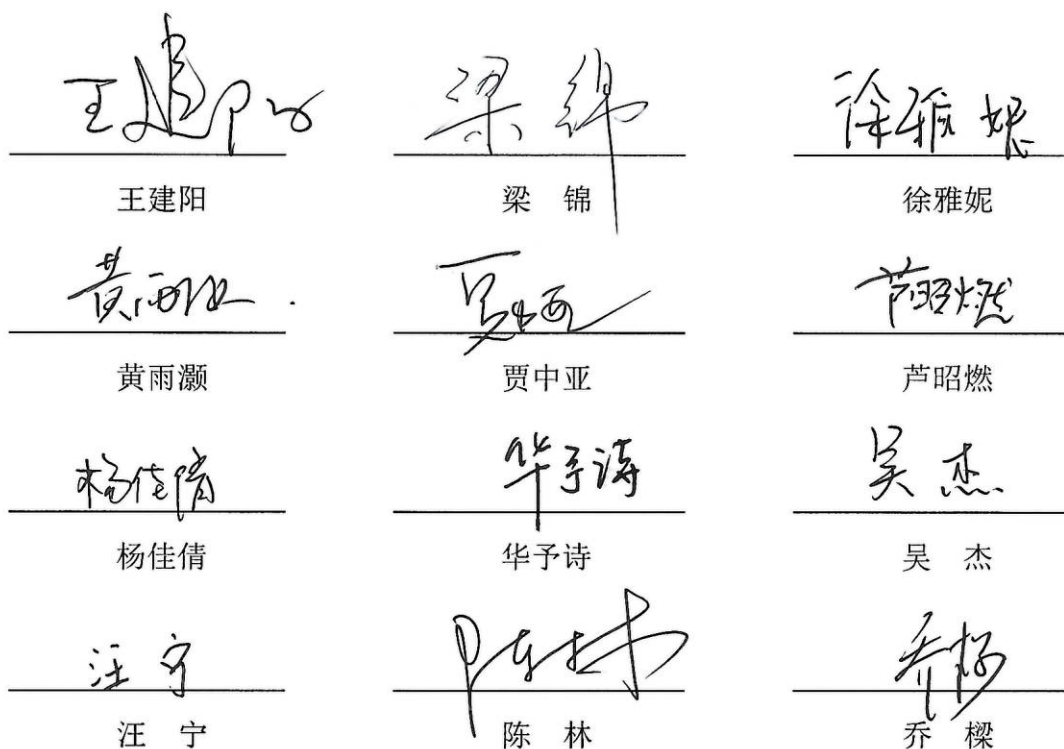 王建阳 梁锦 徐雅妮
王建阳 梁 锦 徐雅妮
黄雨灏 贾中亚 芦昭燃
黄雨灏 贾中亚 芦昭燃
杨佳倩 华予诗 吴杰
杨佳倩 华予诗 吴 杰
汪宁 陈林 乔樑
汪 宁 陈 林 乔 樑